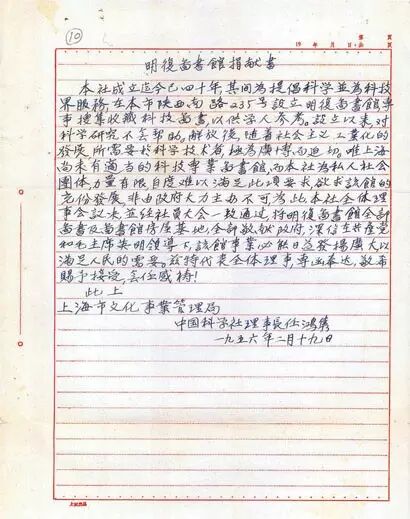 (10)
19 年 月 日 第 頁 共 頁
明復啚書館捐献書
本社成立迄今已四十年其间為提倡科学並為科技
界服務,在本市陕西南路235号設立明復啚書館專
事搜集收藏科技啚書以供学人参考。設立以来对
科学研究不無帮助,解放後,随着社会主义工業化的
發展,所需要於科学技术者極為廣博而迫切。唯上海
尚未有適当的科技專業啚書館,而本社為私人社会
團体力量有限自度难以满足此項要求,欲求該館的
充份發展,非由政府大力主办不可為此本社全体理
事会議决並经社員大会一致通过将明復啚書館全部
啚書及啚書館房屋基地全部敬献政府,深信在共產党
和毛主席英明领導下,該館事業必然日益發揚廣大以
满足人民的需要。兹特代表全体理事,專函奉达,敬希
賜予接受,無任感祷!
此上
上海市文化事業管理局
中国科学社理事長任鴻雋
一九五六年二月十九日